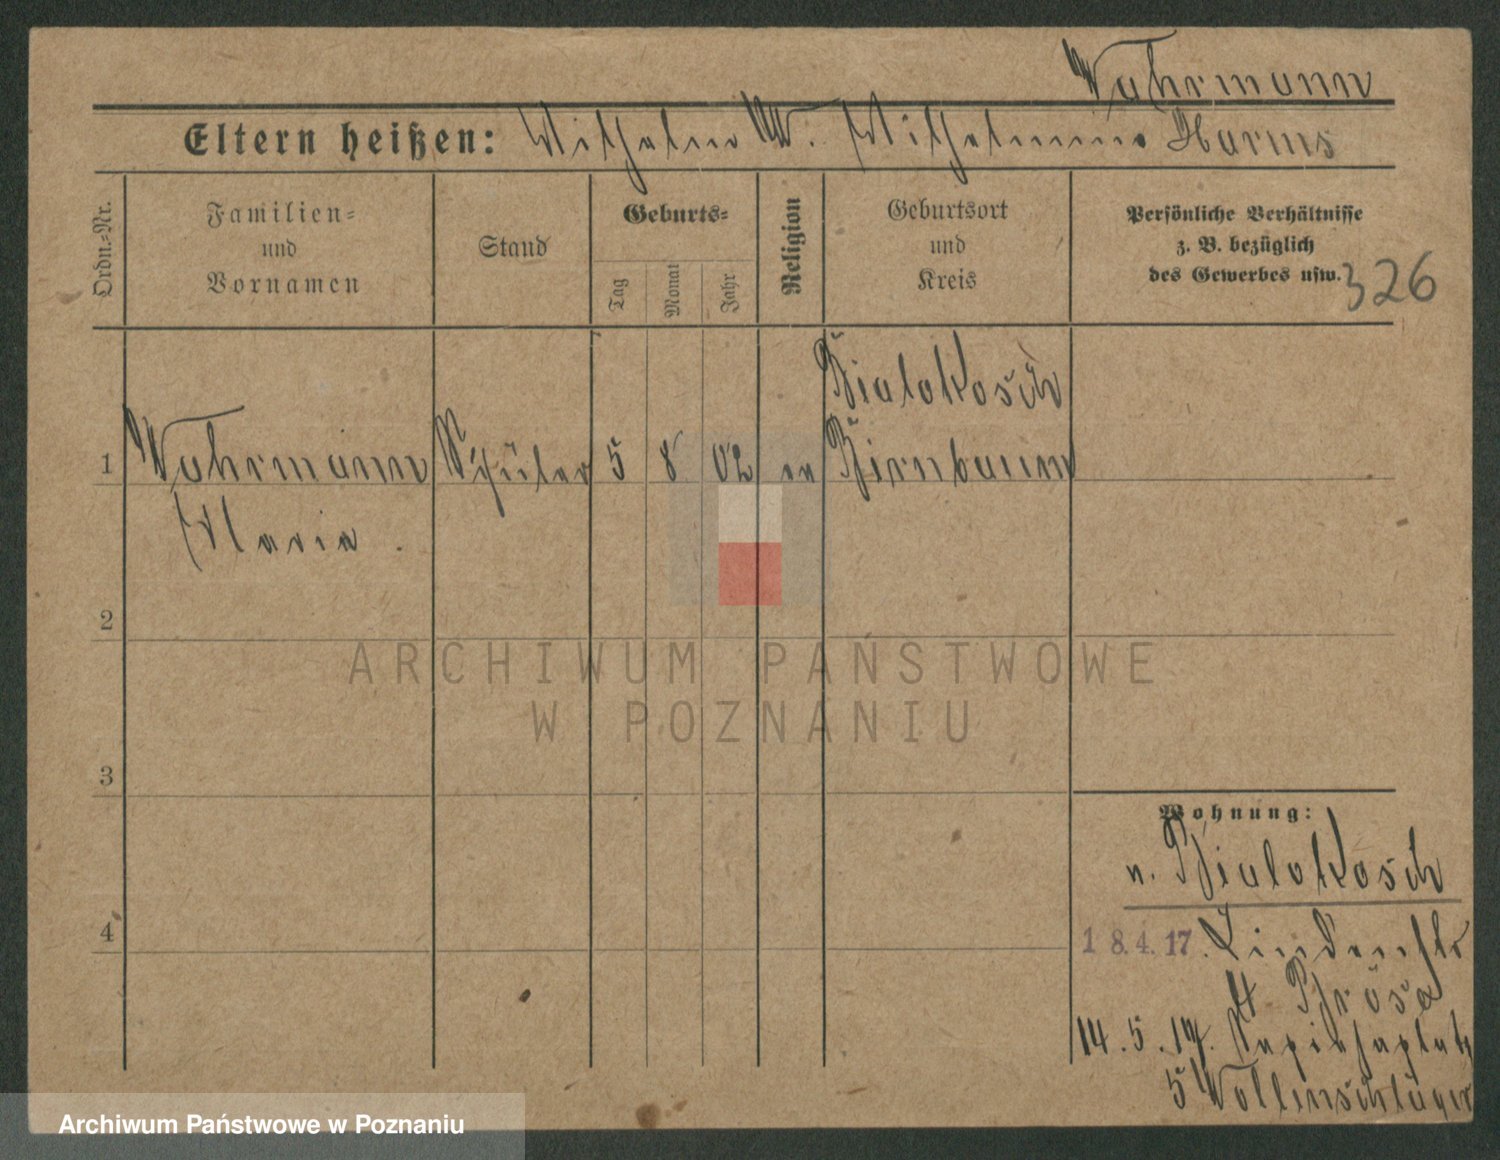 Wuhrmann
Eltern heißen: Wilhelm W. Wilhelmine Harms
Ordn.-Nr.
Familien-
und
Vornamen
Stand
Geburts-
Tag
Monat
Jahr
Religion
Geburtsort
und
Kreis
Persönliche Verhältnisse
z. B. bezüglich
des Gewerbes usw.
326
Bialokosch
1 Wuhrmann Schüler 5 8 02 ev Birnbaum
Maria.
2
ARCHIWUM PAŃSTWOWE
W POZNANIU
3
Wohnung:
n. Bialokosch
4
18.4.17. Lindenstr
4.
14.5.17. Sapiehaplatz
5 Wollenschläger
Archiwum Państwowe w Poznaniu